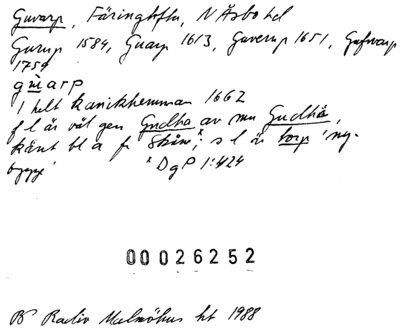 Guvarp, Färingtofta, N Åsbo hd
Gurup 1584, Guarp 1613, Guverup 1651, Gufvarp
1759
guarp
1 helt kanickhemman 1662
f l är väl gen Gudha av mn Gudhi,
känt bl a fr Skåne*; s l är torp 'ny-
bygge'
* DgP 1:424
00026252
BP Radio Malmöhus ht 1988